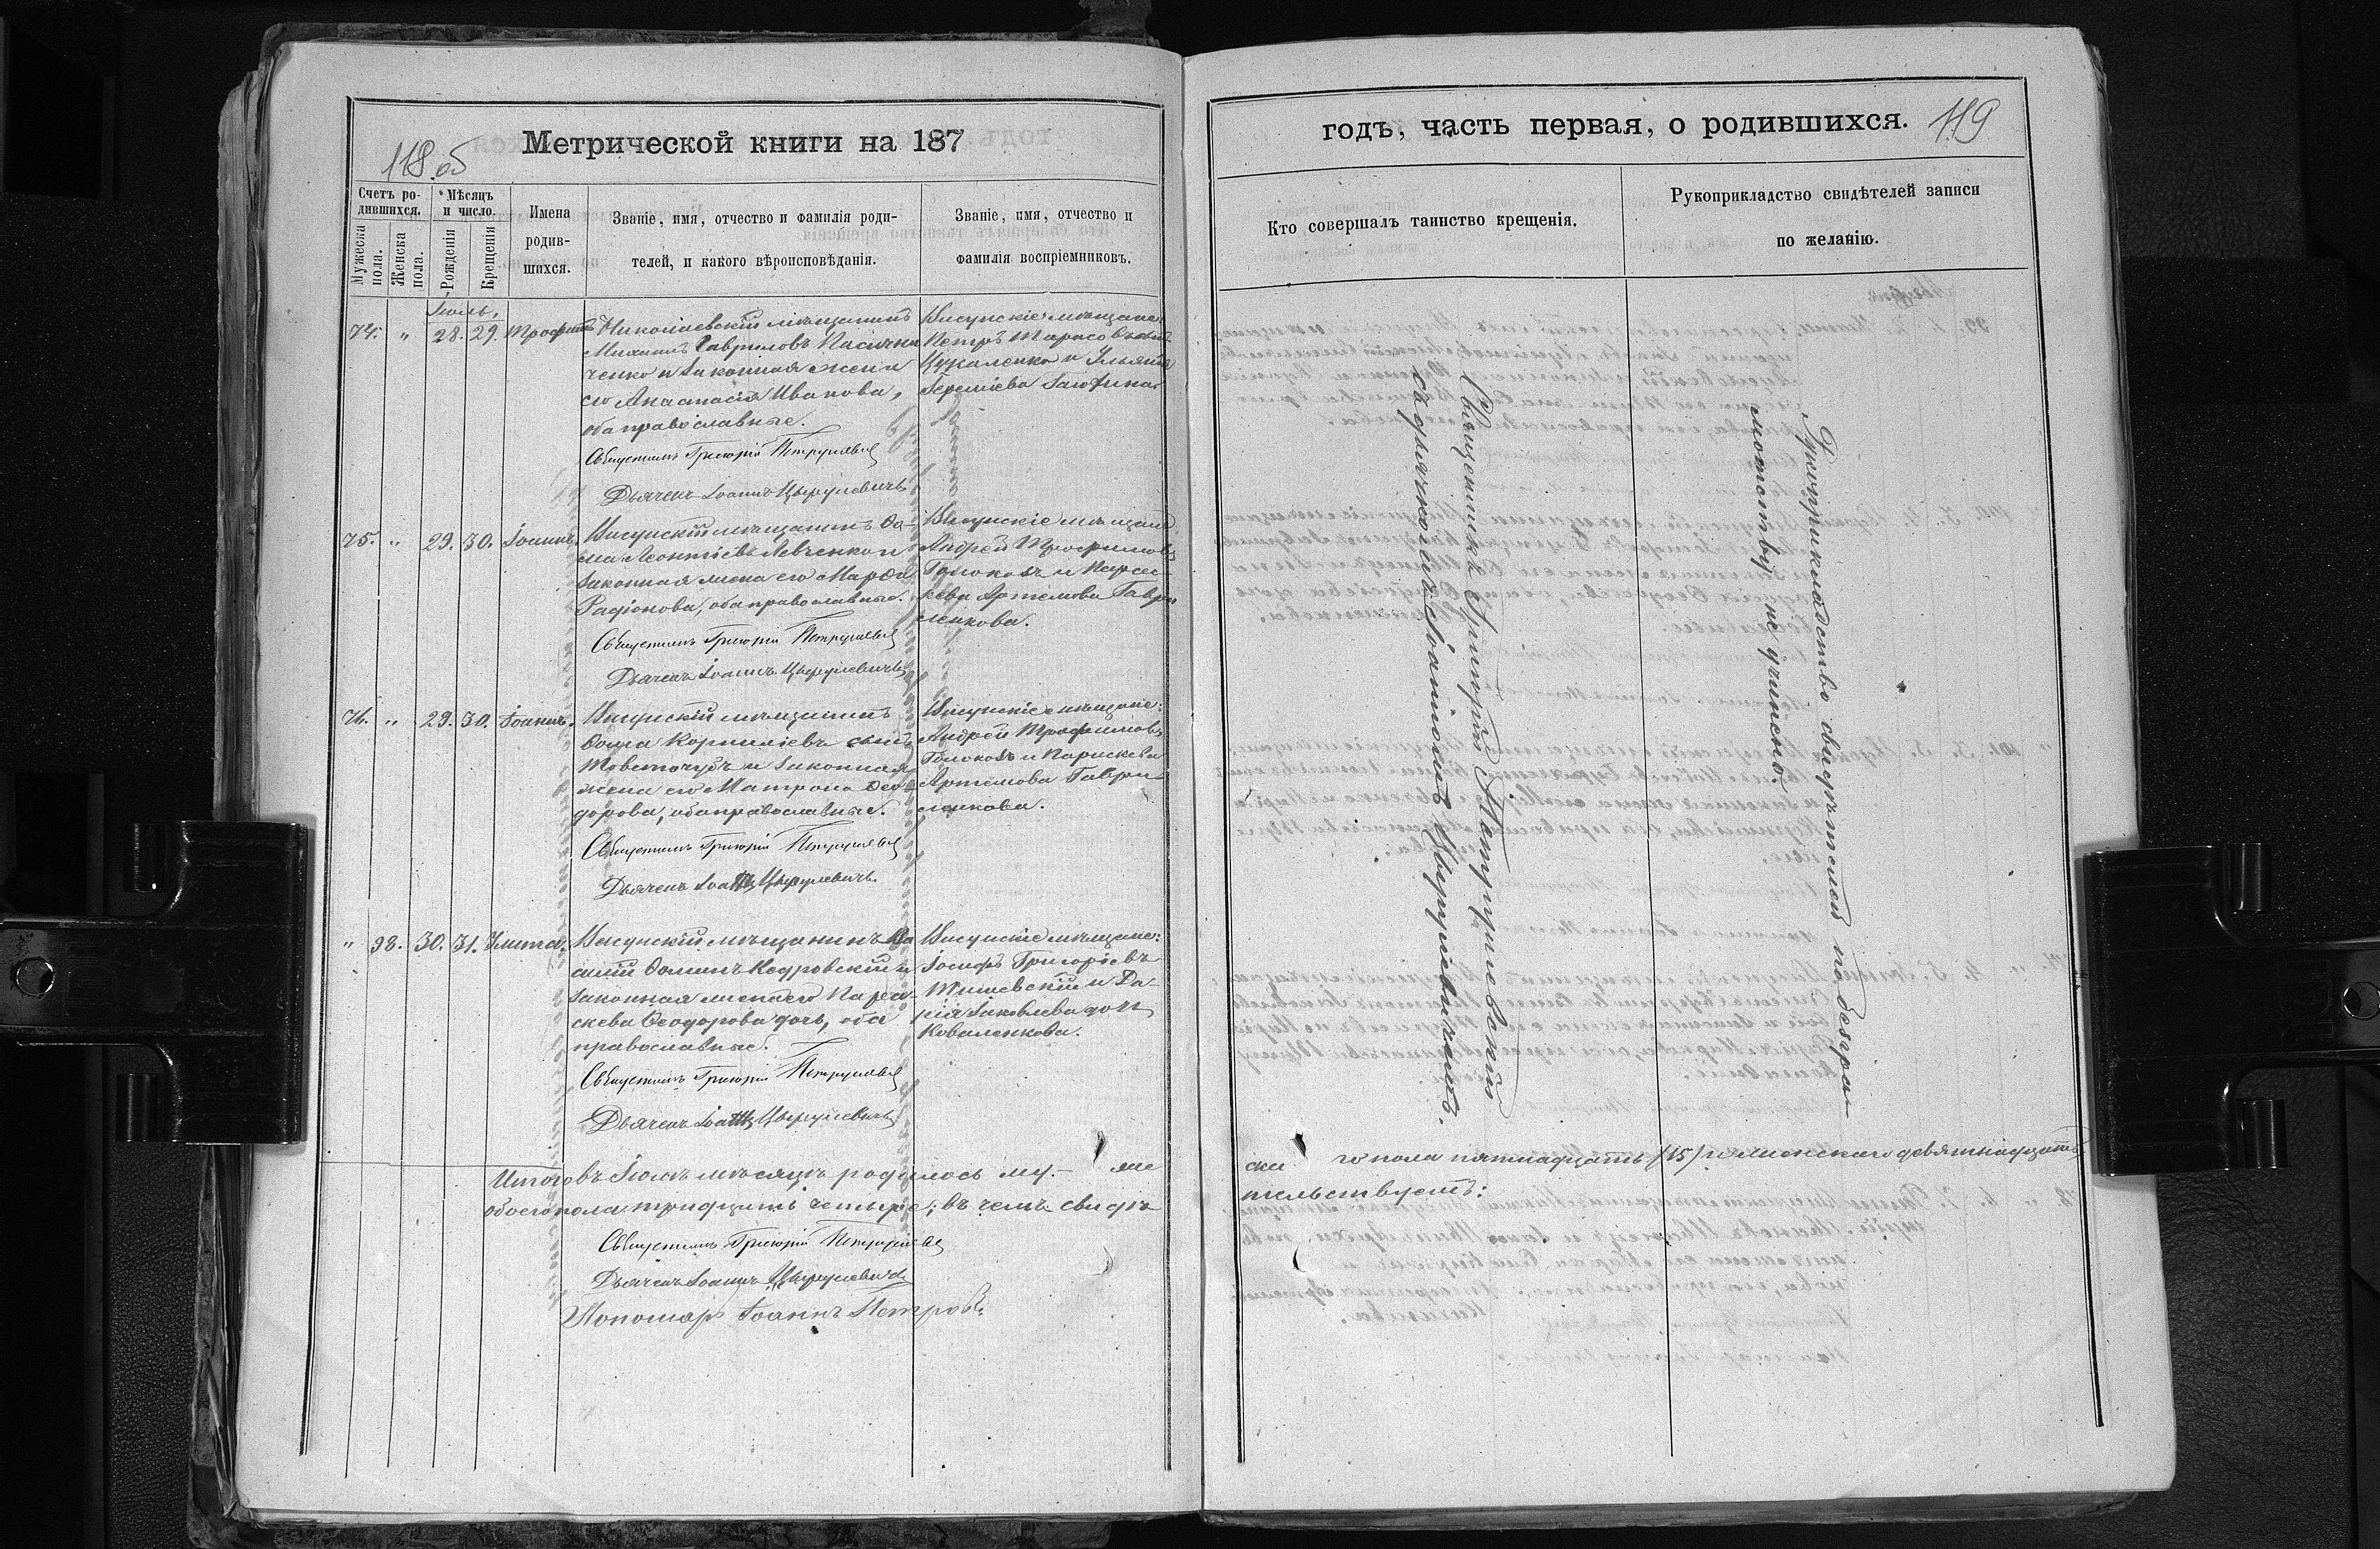 118 об
Метрической книги на 187
Счетъ ро-
дившихся.
Мужеска
пола.
Женска
пола.
Мѣсяцъ
и число.
Рожденія
Крещенія
Имена
родив-
шихся.
Званіе, имя, отчество и фамилія роди-
телей, и какого вѣроисповѣданія.
Званіе, имя, отчество и
фамилія воспріемниковъ.
Іюль,
74. " 28. 29. Трофимъ
Николаевскій мѣщанинъ
Михаилъ Гавриловъ
ченко и законная жена
его Анастасія Иванова,
оба православные.
Священникъ Григорій Петрушевскій
Дьячекъ Іоаннъ Цырулевичъ
Висунскіе мѣщане
Петръ Тарасовъ
Цукаленко и Ульяна
75. " 29. 30. Іоаннъ.
Висунскій мѣщанинъ Ѳо-
ма Леонтіевъ Левченко и
законная жена его Марѳа
Радіонова, оба православные.
Священникъ Григорій Петрушевскій
Дьячекъ Іоаннъ Цырулевичъ
Висунскіе мѣщане
Андрей Трофимовъ
Голокозъ и Парас-
кева Артемова Гаври
ленкова.
76. " 29. 30. Іоаннъ.
Висунскій мѣщанинъ
Ѳома Корниліевъ сынъ
Товсточубъ и законная
жена его Матрона Ѳео-
дорова, оба православные.
Священникъ Григорій Петрушевскій
Дьячекъ Іоаннъ Цырулевичъ
Висунскіе мѣщане:
Андрей Трофимовъ
Голокозъ и Параскева
Артемова Гаври-
ленкова.
" 98. 30. 31. Улита.
Висунскій мѣщанинъ Ва
силій Ѳоминъ Кодровскій и
законная жена его Парас-
скева Ѳеодорова дочь, оба
православные.
Священникъ Григорій Петрушевскій
Дьячекъ Іоаннъ Цырулевичъ
Висунскіе мѣщане:
Іосифъ Григорьевъ
Тишевскій и Да-
рія Іаковлева дочь
Коваленкова.
Итого въ Іюлѣ мѣсяцѣ родилось му- же
обоего пола тридцать четыре; въ чемъ свидѣ
Священникъ Григорій Петрушевскій
Дьячекъ Іоаннъ Цырулевичъ
Пономарь Іоаннъ Петровъ
годъ, часть первая, о родившихся.
119
Кто совершалъ таинство крещенія.
Рукоприкладство свидѣтелей записи
по желанію.
Священникъ Григорій Петрушевскій
съ дьячкомъ Іоанномъ Цырулевичемъ.
Рукоприкладство свидѣтелей по безгра-
мотству не учинено.
ска го пола пятнадцать (15) и женскаго девятнадцать
тельствуемъ: